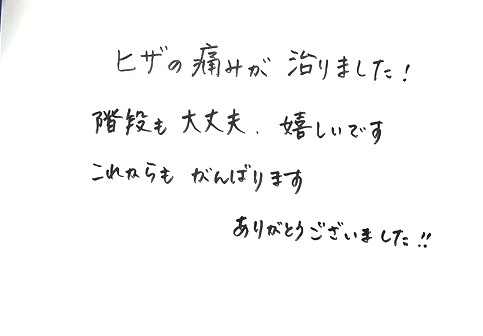 ヒザの痛みが 治りました!
階段も 大丈夫、嬉しいです
これからも がんばります
ありがとうございました!!